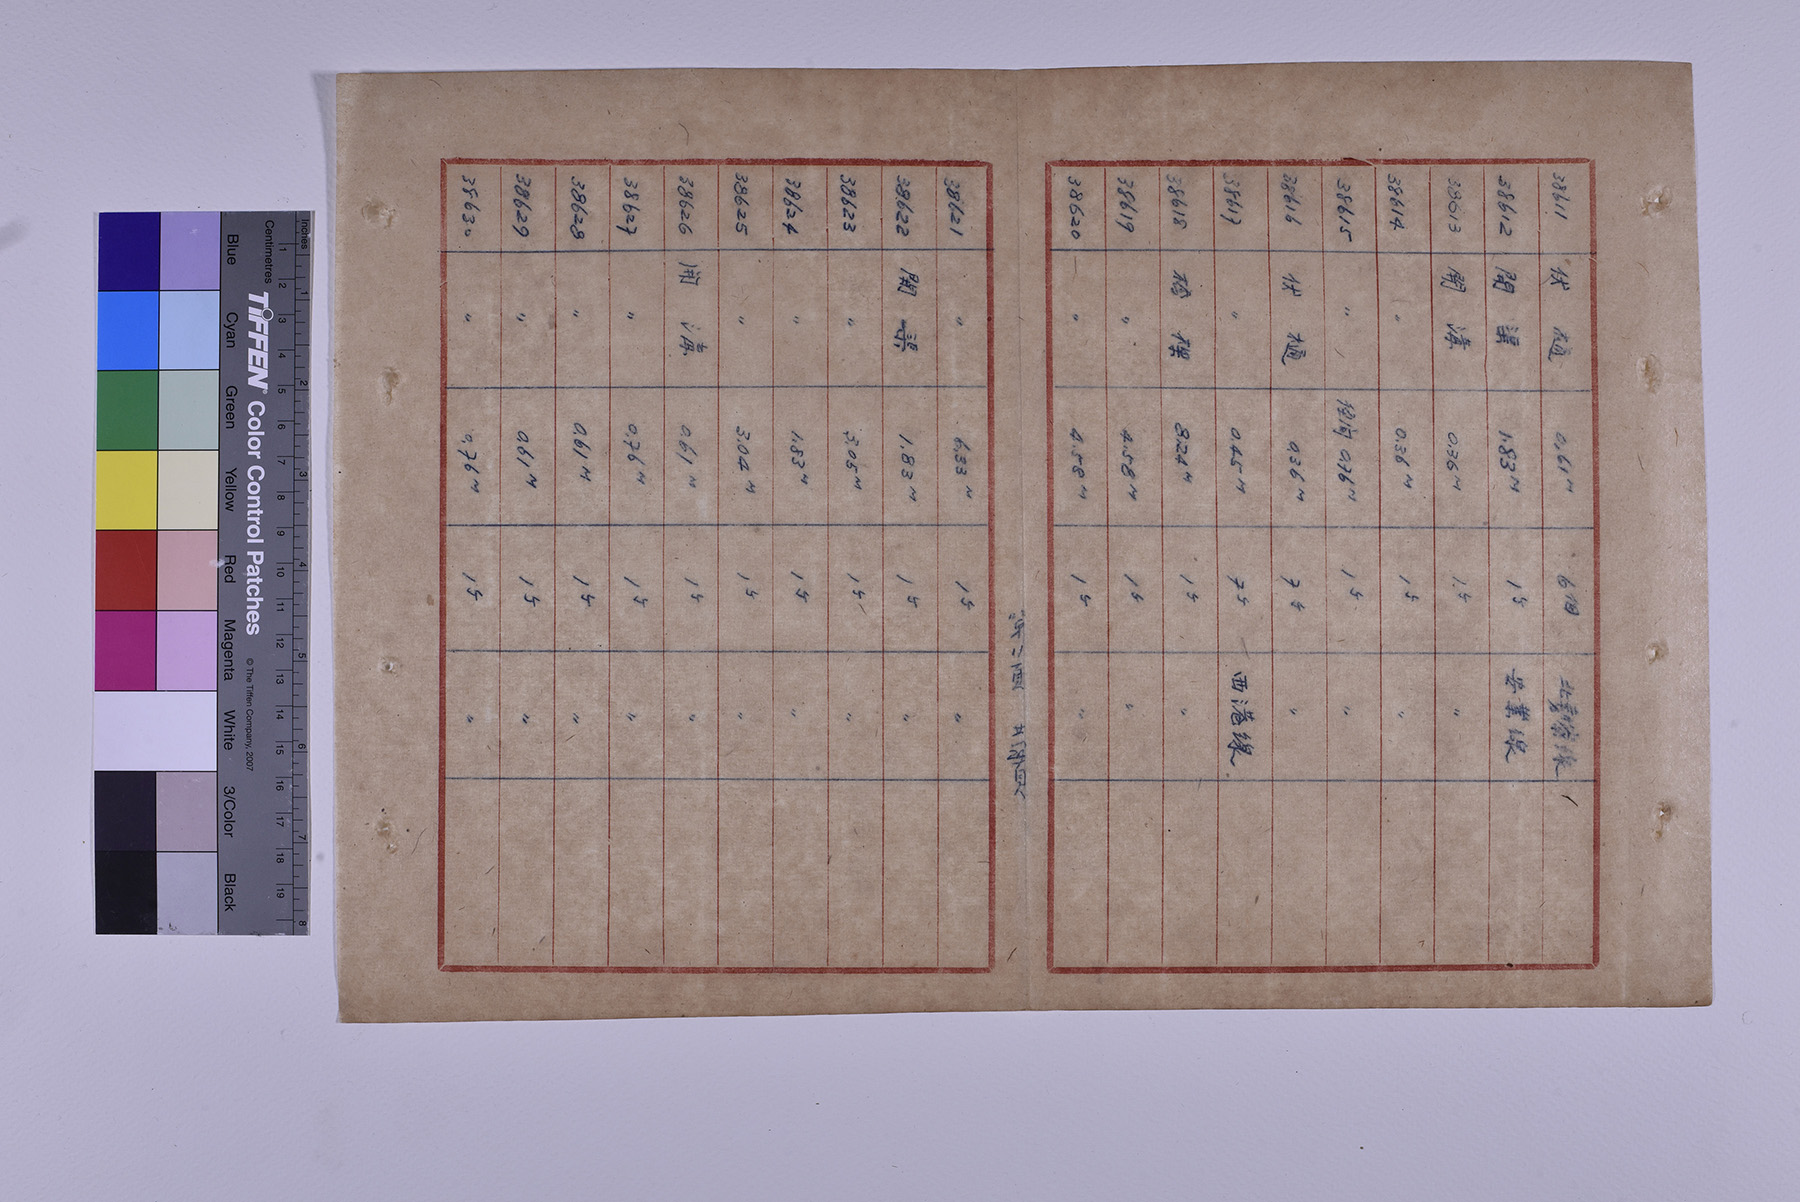 38611 伏樋 0.61M 6個
38612 開渠 1.83M 1ケ 安業線
38613 開溝 0.36M 1ケ 〃
38614 〃 0.36M 1ケ 〃
38615 〃 0.76M 1ケ 〃
38616 伏樋 0.36M 7ケ 〃
38617 〃 0.45M 7ケ 西港線
38618 橋樑 8.24M 1ケ 〃
38619 〃 4.58M 1ケ 〃
38620 〃 4.58M 1ケ 〃
38621 〃 6.33M 1ケ 〃
38622 開渠 1.83M 1ケ 〃
38623 〃 3.05M 1ケ 〃
38624 〃 1.83M 1ケ 〃
38625 〃 3.04M 1ケ 〃
38626 開溝 0.61M 1ケ 〃
38627 〃 0.76M 1ケ 〃
38628 〃 0.61M 1ケ 〃
38629 〃 0.61M 1ケ 〃
38630 〃 0.76M 1ケ 〃
Inches
1 2 3 4 5 6 7 8
Centimetres
1 2 3 4 5 6 7 8 9 10 11 12 13 14 15 16 17 18 19
TIFFEN Color Control Patches
© The Tiffen Company, 2007
Blue
Cyan
Green
Yellow
Red
Magenta
White
3/Color
Black